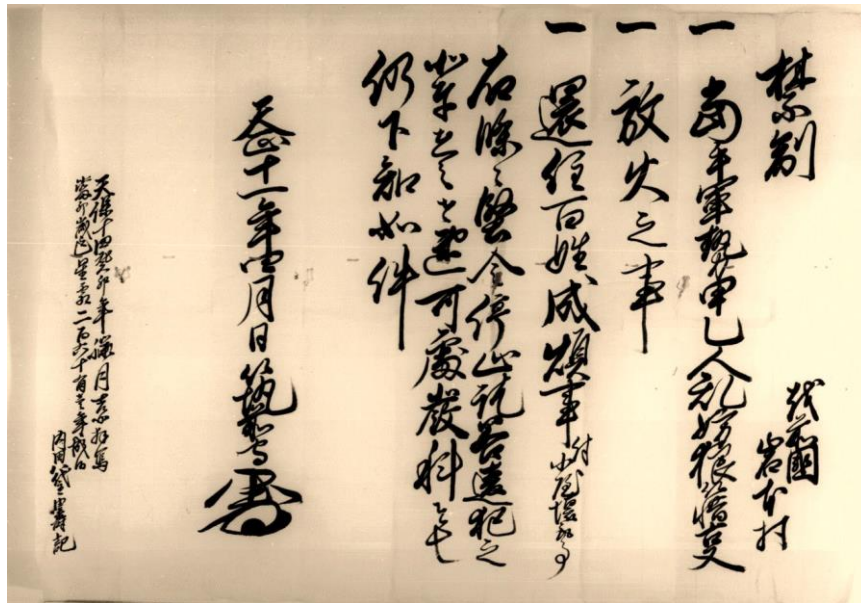 禁制
越前國
岩本村
一 當手軍勢甲乙人乱妨狼藉事
一 放火之事
一 還住百姓成煩事 付
右條々堅令停止訖若違犯之
輩在之者速可處厳科者也
仍下知如件
天正十一年四月日筑前守
天保十四癸卯年臘月
當卯歳迄星霜二百六十有壱年
内田 記